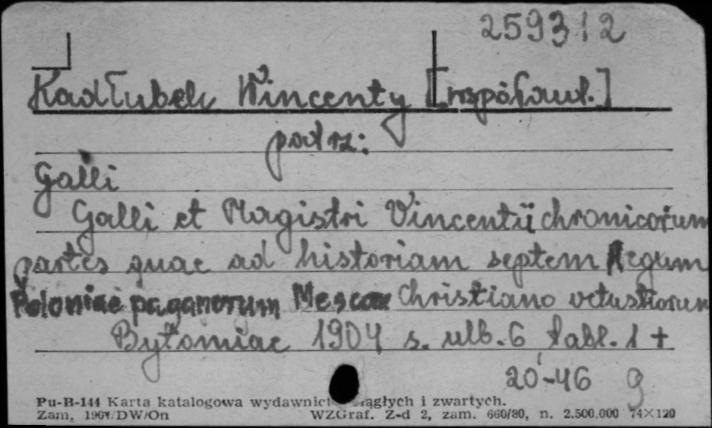 259312
Kadłubek Wincenty [współaut.]
patrz:
Galli
Galli et Magistri Vincentii chronicorum
partes quae ad historiam septem Regum
Poloniae paganorum Mescone Christiano vetustiorum
Bytomiae 1904 s. ulb. 6 tabl. 1 +
20-46 g
Pu-B-144 Karta katalogowa wydawnictw ciągłych i zwartych.
Zam. DW/On WZGraf. Z-d 2, zam. 660/80, n. 2.500.000 74×120